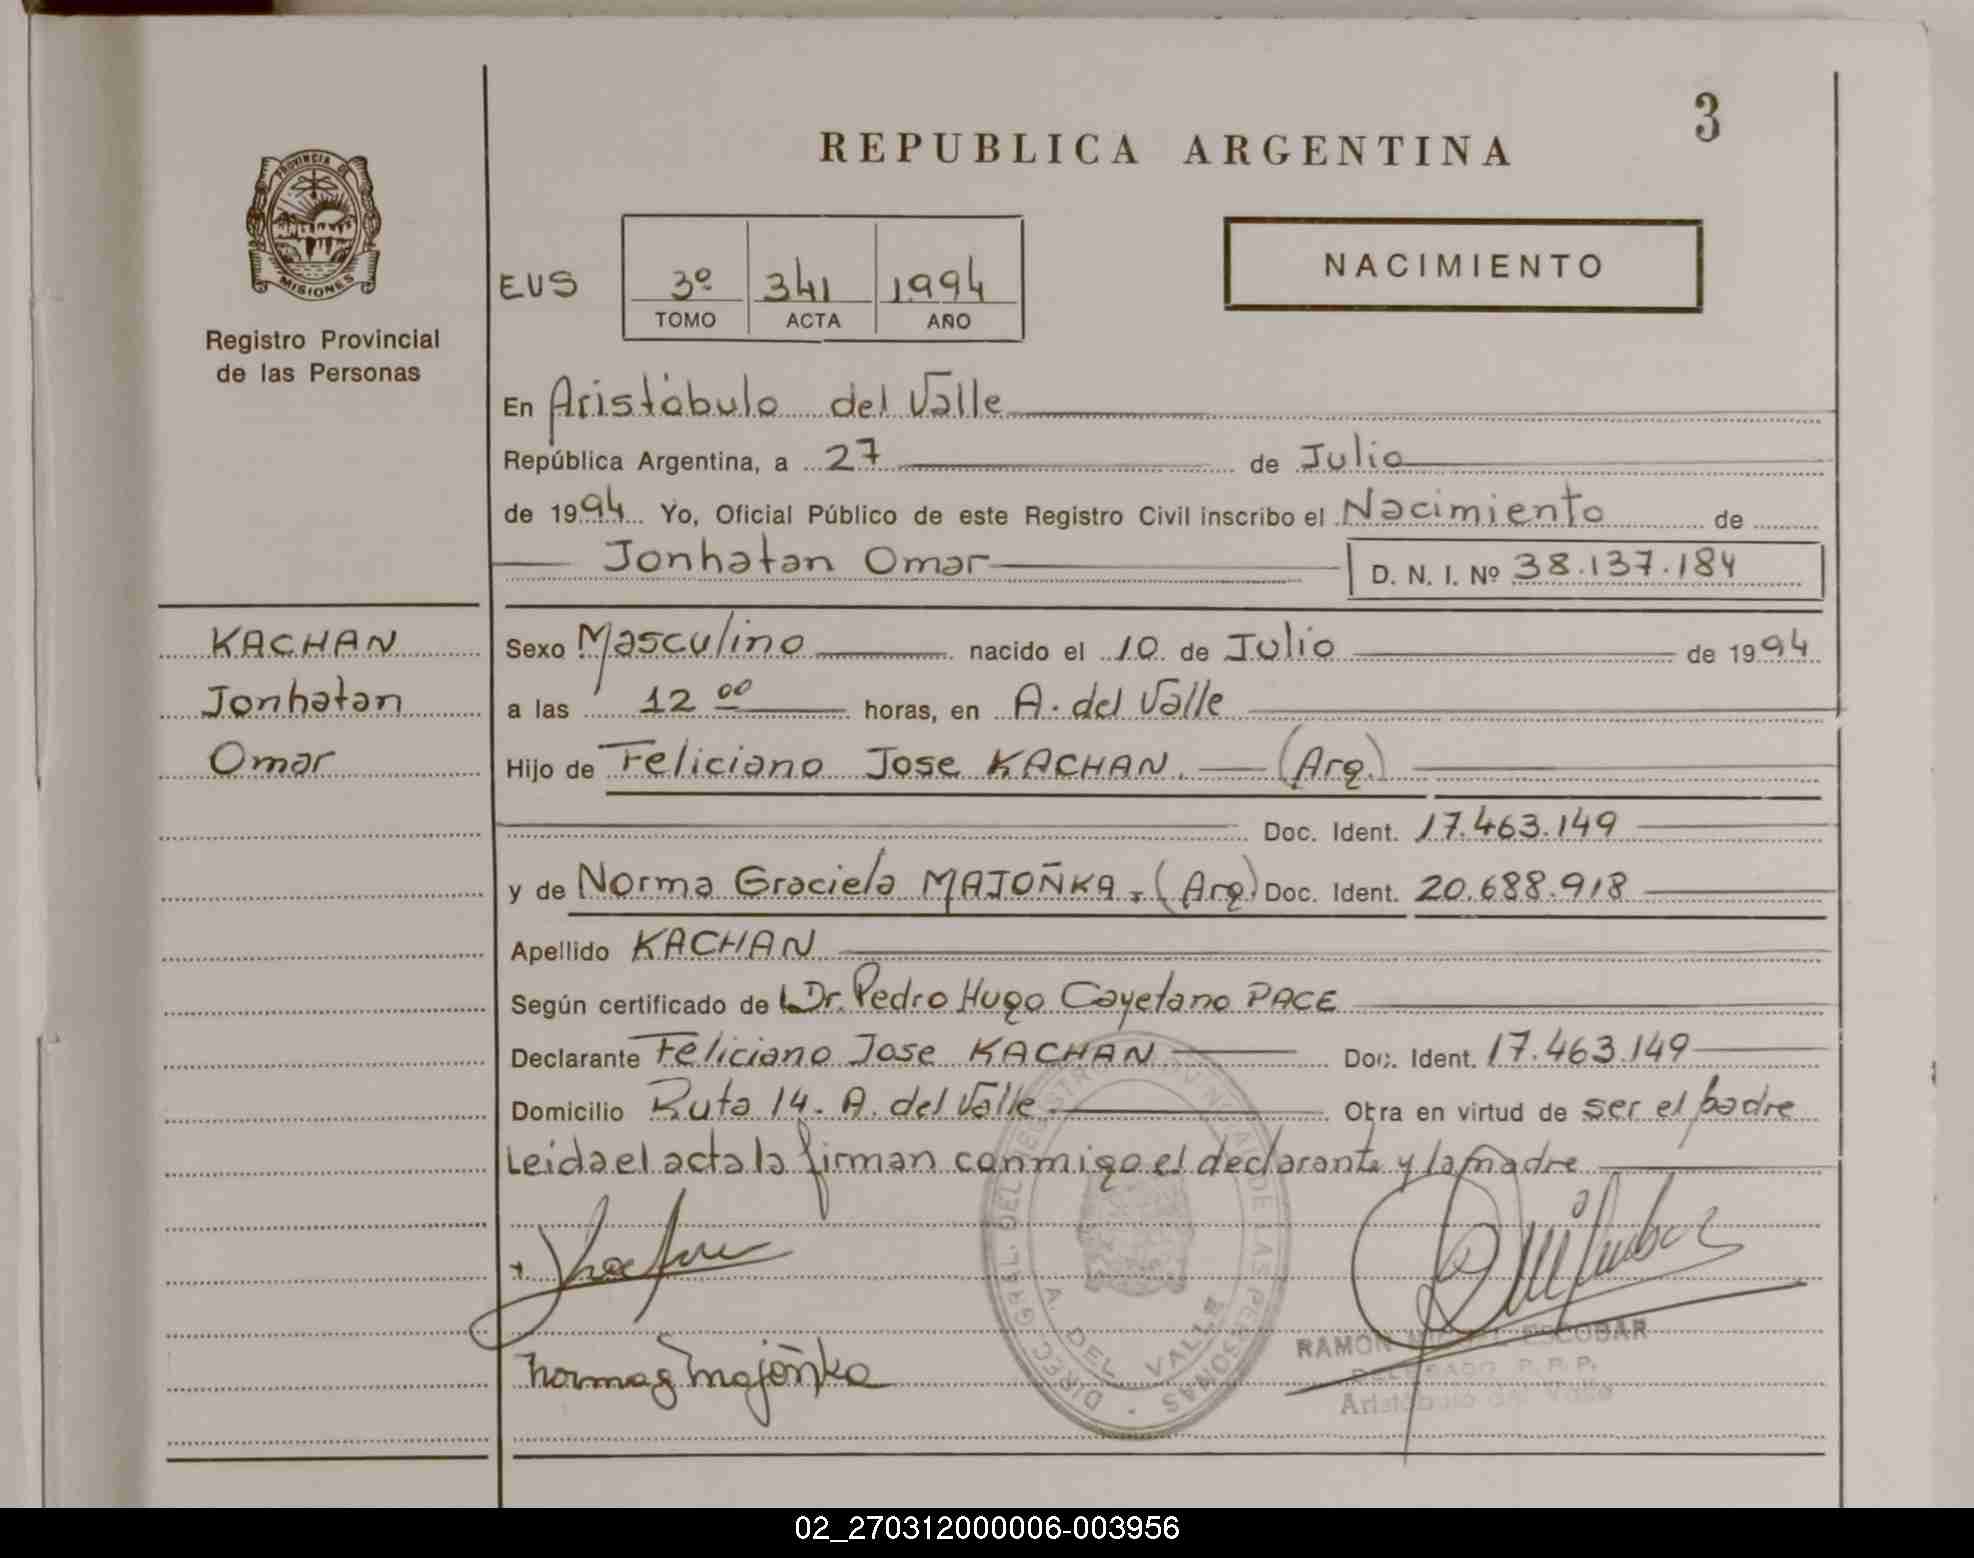 3
REPUBLICA ARGENTINA
PROVINCIA DE
MISIONES
Registro Provincial
de las Personas
NACIMIENTO
EUS 3º 341 1994
TOMO ACTA AÑO
En Aristóbulo del Valle
República Argentina, a 27 de Julio
de 1994 Yo, Oficial Público de este Registro Civil inscribo el Nacimiento de
Jonhatan Omar D. N. I. Nº 38.137.184
KACHAN
Jonhatan
Omar
Sexo Masculino nacido el 10 de Julio de 1994
a las 12 00 horas, en A. del Valle
Hijo de Feliciano Jose KACHAN. (Arg.)
Doc. Ident. 17.463.149
y de Norma Graciela MAJOÑKA. (Arg) Doc. Ident. 20.688.918
Apellido KACHAN
Según certificado de Dr. Pedro Hugo Cayetano PACE
Declarante Feliciano Jose KACHAN Doc. Ident. 17.463.149
Domicilio Ruta 14. A. del Valle Obra en virtud de ser el padre
Leida el acta la firman conmigo el declarante y la madre
DIREC. GRAL. DEL REGISTRO PROVINCIAL DE LAS PERSONAS
A. DEL VALLE
RAMON ESCOBAR
DELEGADO R. P. P.
Aristóbulo del Valle
Norma G Majoñka
02_270312000006-003956